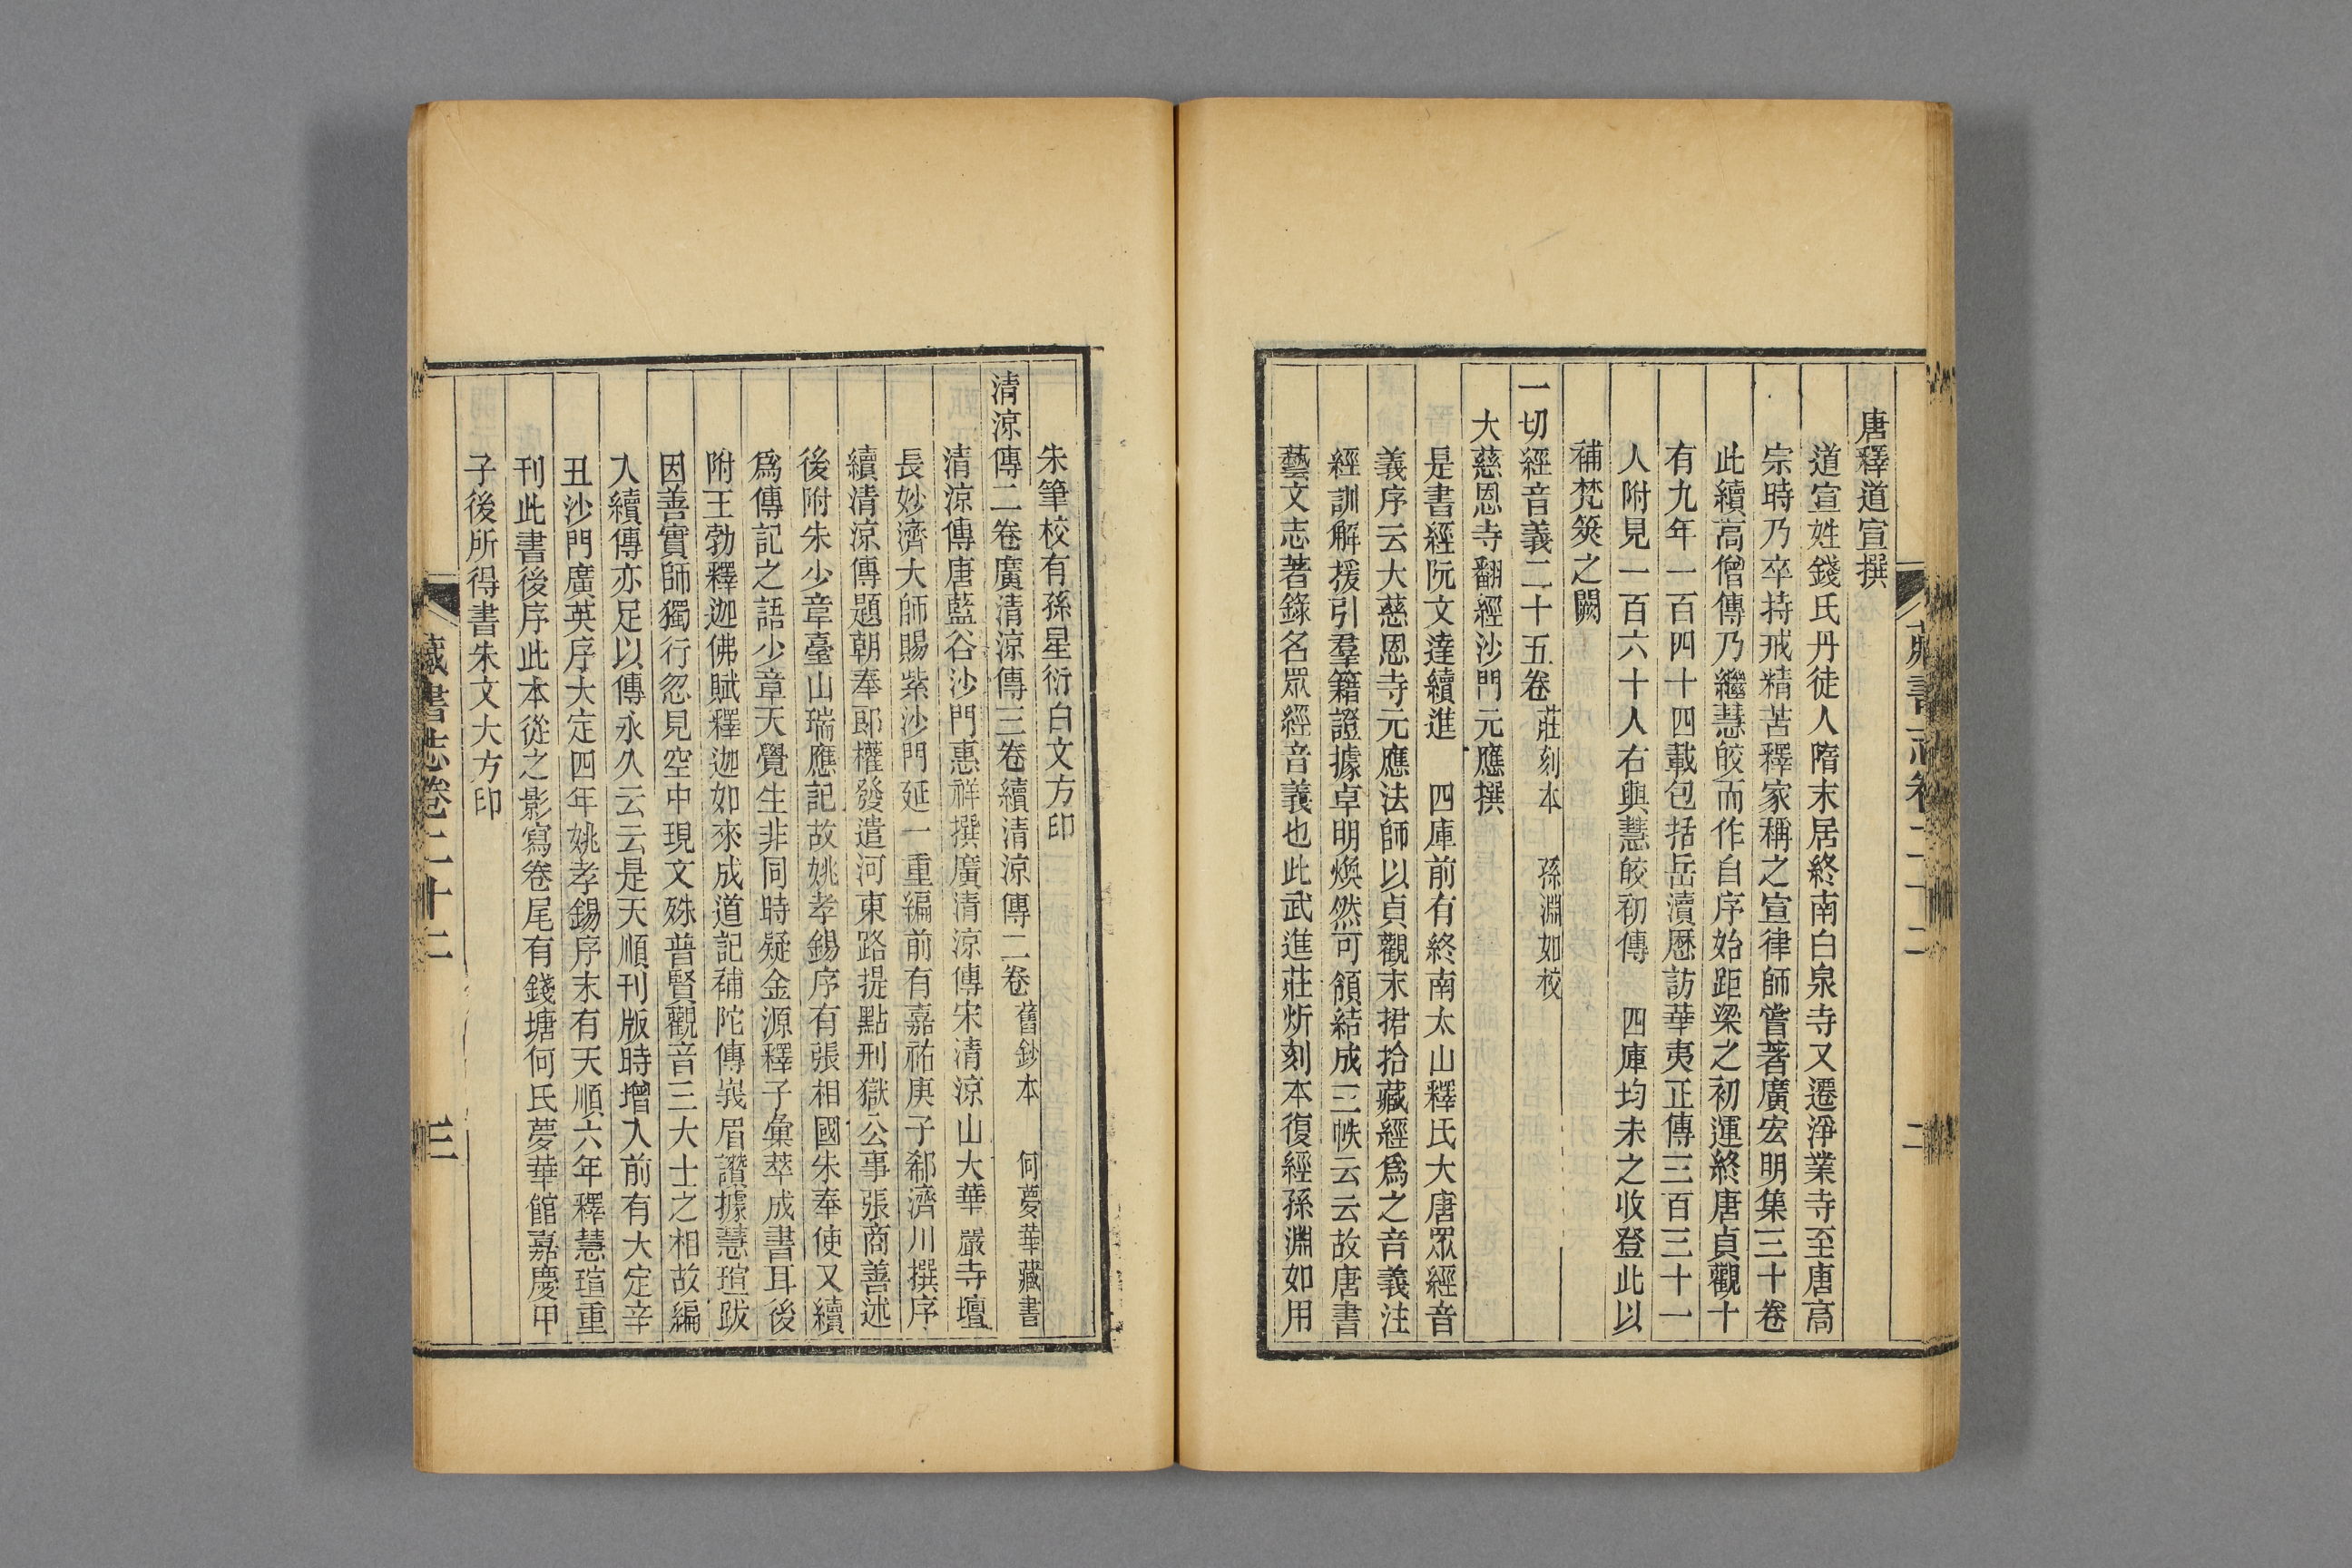 藏書志卷二十二
二
唐釋道宣撰
道宣姓錢氏丹徒人隋末居終南白泉寺又遷淨業寺至唐高
宗時乃卒持戒精苦釋家稱之宣律師嘗著廣宏明集三十卷
此續高僧傳乃繼慧皎而作自序始距梁之初運終唐貞觀十
有九年一百四十四載包括岳瀆歷訪華夷正傳三百三十一
人附見一百六十人右與慧皎初傳　四庫均未之收登此以
補梵筴之闕
一切經音義二十五卷　莊刻本　孫淵如校
大慈恩寺翻經沙門元應撰
是書經阮文達續進　四庫前有終南太山釋氏大唐眾經音
義序云大慈恩寺元應法師以貞觀末捃拾藏經爲之音義注
經訓解援引羣籍證據卓明煥然可領結成三帙云云故唐書
藝文志著錄名眾經音義也此武進莊炘刻本復經孫淵如用
朱筆校有孫星衍白文方印
清涼傳二卷廣清涼傳三卷續清涼傳二卷　舊鈔本　何夢華藏書
清涼傳唐藍谷沙門惠祥撰廣清涼傳宋清涼山大華嚴寺壇
長妙濟大師賜紫沙門延一重編前有嘉祐庚子郗濟川撰序
續清涼傳題朝奉郎權發遣河東路提點刑獄公事張商善述
後附朱少章臺山瑞應記故姚孝錫序有張相國朱奉使又續
爲傳記之語少章天覺生非同時疑金源釋子彙萃成書耳後
附王勃釋迦佛賦釋迦如來成道記補陀傳峩眉讚據慧瑄跋
因善實師獨行忽見空中現文殊普賢觀音三大士之相故編
入續傳亦足以傳永久云云是天順刊版時增入前有大定辛
丑沙門廣英序大定四年姚孝錫序末有天順六年釋慧瑄重
刊此書後序此本從之影寫卷尾有錢塘何氏夢華館嘉慶甲
子後所得書朱文大方印
藏書志卷二十二
三